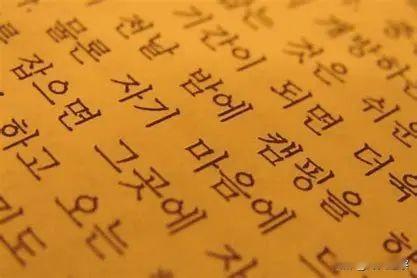 개방하는
는 것은 쉬운
기간이 되면 더욱
전날 밤에 캠핑을 하
물론 자기 마음에
잡으면 그곳에 자
하고 오는